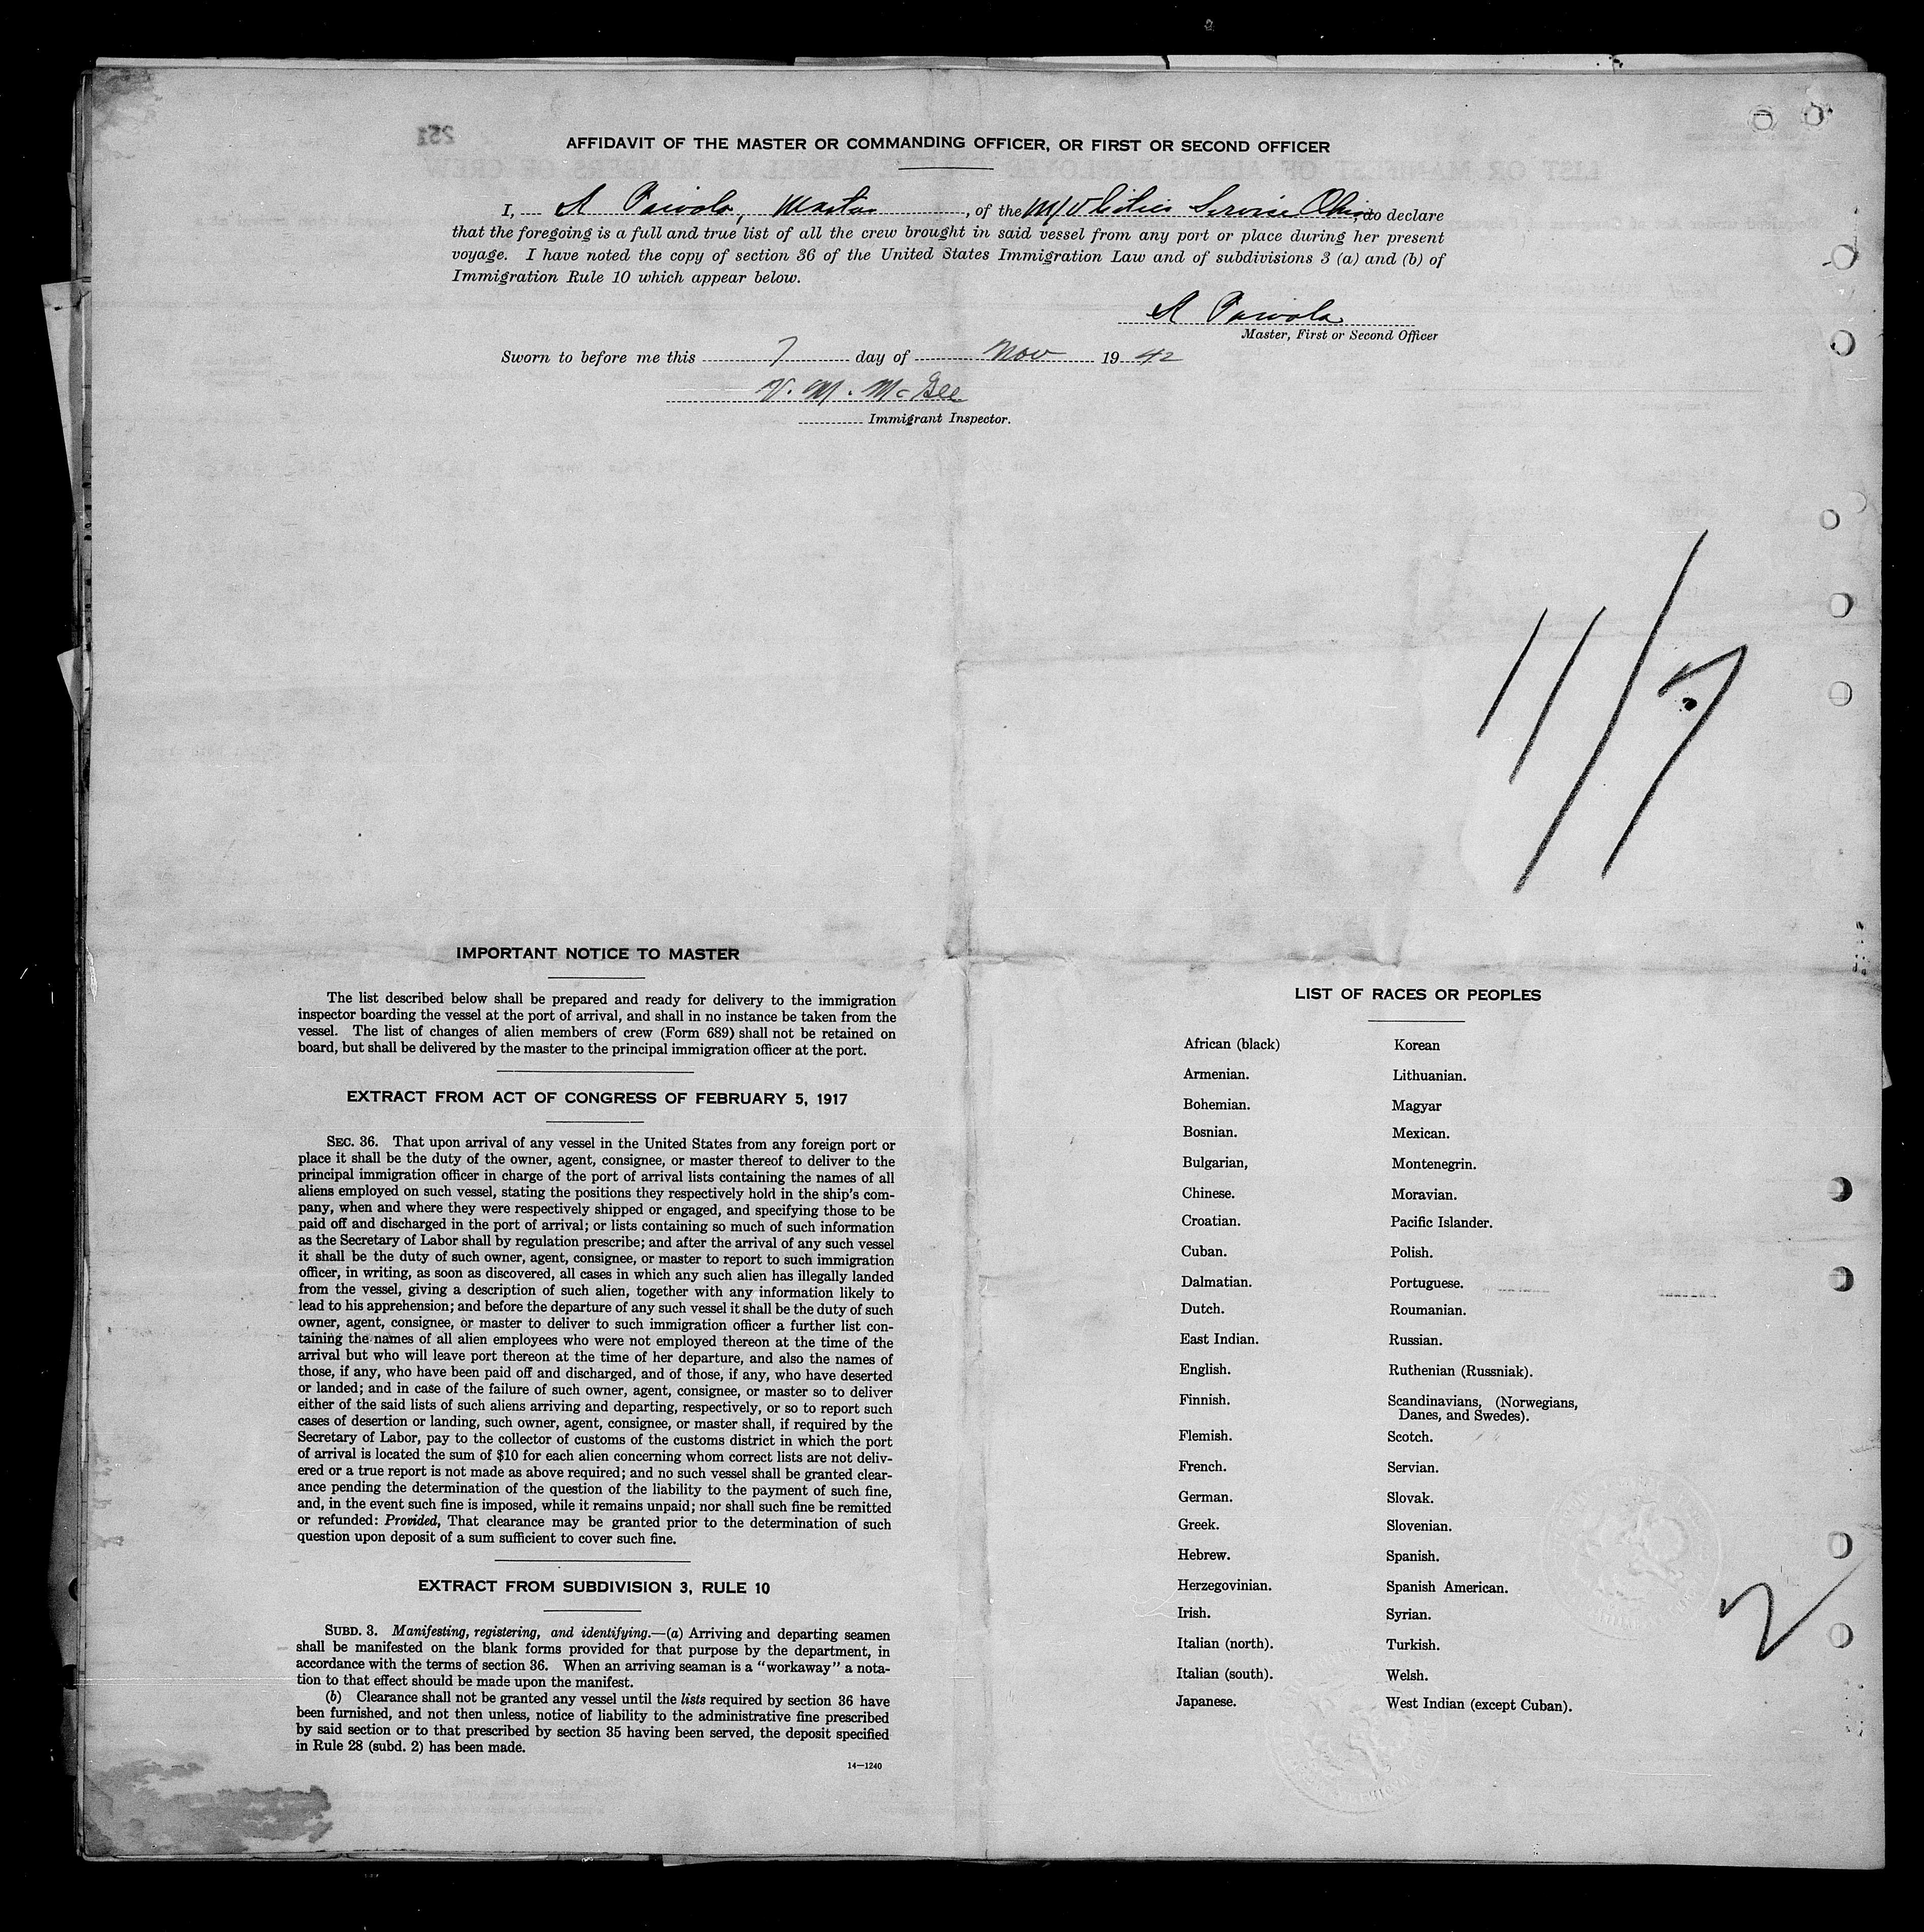 AFFIDAVIT OF THE MASTER OR COMMANDING OFFICER, OR FIRST OR SECOND OFFICER
I, A Paivola, Master, of the M/V Cities Service Ohio, do declare
that the foregoing is a full and true list of all the crew brought in said vessel from any port or place during her present
voyage. I have noted the copy of section 36 of the United States Immigration Law and of subdivisions 3 (a) and (b) of
Immigration Rule 10 which appear below.
A Paivola
Master, First or Second Officer
Sworn to before me this 7 day of Nov 1942
V. M. McGee
Immigrant Inspector.
11/7
IMPORTANT NOTICE TO MASTER
The list described below shall be prepared and ready for delivery to the immigration
inspector boarding the vessel at the port of arrival, and shall in no instance be taken from the
vessel. The list of changes of alien members of crew (Form 689) shall not be retained on
board, but shall be delivered by the master to the principal immigration officer at the port.
EXTRACT FROM ACT OF CONGRESS OF FEBRUARY 5, 1917
SEC. 36. That upon arrival of any vessel in the United States from any foreign port or
place it shall be the duty of the owner, agent, consignee, or master thereof to deliver to the
principal immigration officer in charge of the port of arrival lists containing the names of all
aliens employed on such vessel, stating the positions they respectively hold in the ship's com-
pany, when and where they were respectively shipped or engaged, and specifying those to be
paid off and discharged in the port of arrival; or lists containing so much of such information
as the Secretary of Labor shall by regulation prescribe; and after the arrival of any such vessel
it shall be the duty of such owner, agent, consignee, or master to report to such immigration
officer, in writing, as soon as discovered, all cases in which any such alien has illegally landed
from the vessel, giving a description of such alien, together with any information likely to
lead to his apprehension; and before the departure of any such vessel it shall be the duty of such
owner, agent, consignee, or master to deliver to such immigration officer a further list con-
taining the names of all alien employees who were not employed thereon at the time of the
arrival but who will leave port thereon at the time of her departure, and also the names of
those, if any, who have been paid off and discharged, and of those, if any, who have deserted
or landed; and in case of the failure of such owner, agent, consignee, or master so to deliver
either of the said lists of such aliens arriving and departing, respectively, or so to report such
cases of desertion or landing, such owner, agent, consignee, or master shall, if required by the
Secretary of Labor, pay to the collector of customs of the customs district in which the port
of arrival is located the sum of $10 for each alien concerning whom correct lists are not deliv-
ered or a true report is not made as above required; and no such vessel shall be granted clear-
ance pending the determination of the question of the liability to the payment of such fine,
and, in the event such fine is imposed, while it remains unpaid; nor shall such fine be remitted
or refunded: Provided, That clearance may be granted prior to the determination of such
question upon deposit of a sum sufficient to cover such fine.
EXTRACT FROM SUBDIVISION 3, RULE 10
SUBD. 3. Manifesting, registering, and identifying.—(a) Arriving and departing seamen
shall be manifested on the blank forms provided for that purpose by the department, in
accordance with the terms of section 36. When an arriving seaman is a "workaway" a nota-
tion to that effect should be made upon the manifest.
(b) Clearance shall not be granted any vessel until the lists required by section 36 have
been furnished, and not then unless, notice of liability to the administrative fine prescribed
by said section or to that prescribed by section 35 having been served, the deposit specified
in Rule 28 (subd. 2) has been made.
14—1240
LIST OF RACES OR PEOPLES
African (black)
Armenian.
Bohemian.
Bosnian.
Bulgarian,
Chinese.
Croatian.
Cuban.
Dalmatian.
Dutch.
East Indian.
English.
Finnish.
Flemish.
French.
German.
Greek.
Hebrew.
Herzegovinian.
Irish.
Italian (north).
Italian (south).
Japanese.
Korean
Lithuanian.
Magyar
Mexican.
Montenegrin.
Moravian.
Pacific Islander.
Polish.
Portuguese.
Roumanian.
Russian.
Ruthenian (Russniak).
Scandinavians, (Norwegians,
Danes, and Swedes).
Scotch.
Servian.
Slovak.
Slovenian.
Spanish.
Spanish American.
Syrian.
Turkish.
Welsh.
West Indian (except Cuban).